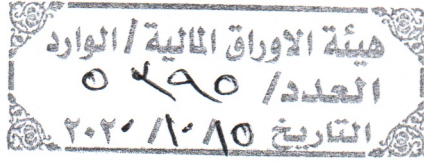 هيئة الاوراق المالية / الوارد
العدد /
التاريخ ١٥ / ١٠ / ٢٠٢٠